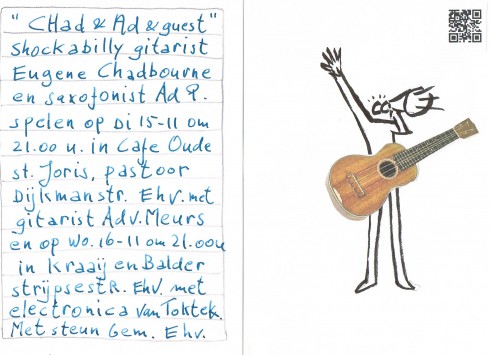 "CHad & Ad & guest"
shockabilly gitarist
Eugene Chadbourne
en saxofonist Ad P.
spelen op Di 15-11 om
21.00 u. in Cafe Oude
st. Joris, pastoor
Dijkmanstr. Ehv. met
gitarist Adv. Meurs
en op Wo. 16-11 om 21.00u
in Kraaij en Balder
strijpsestR. Ehv. met
electronica van Toktek.
Met steun Gem. Ehv.